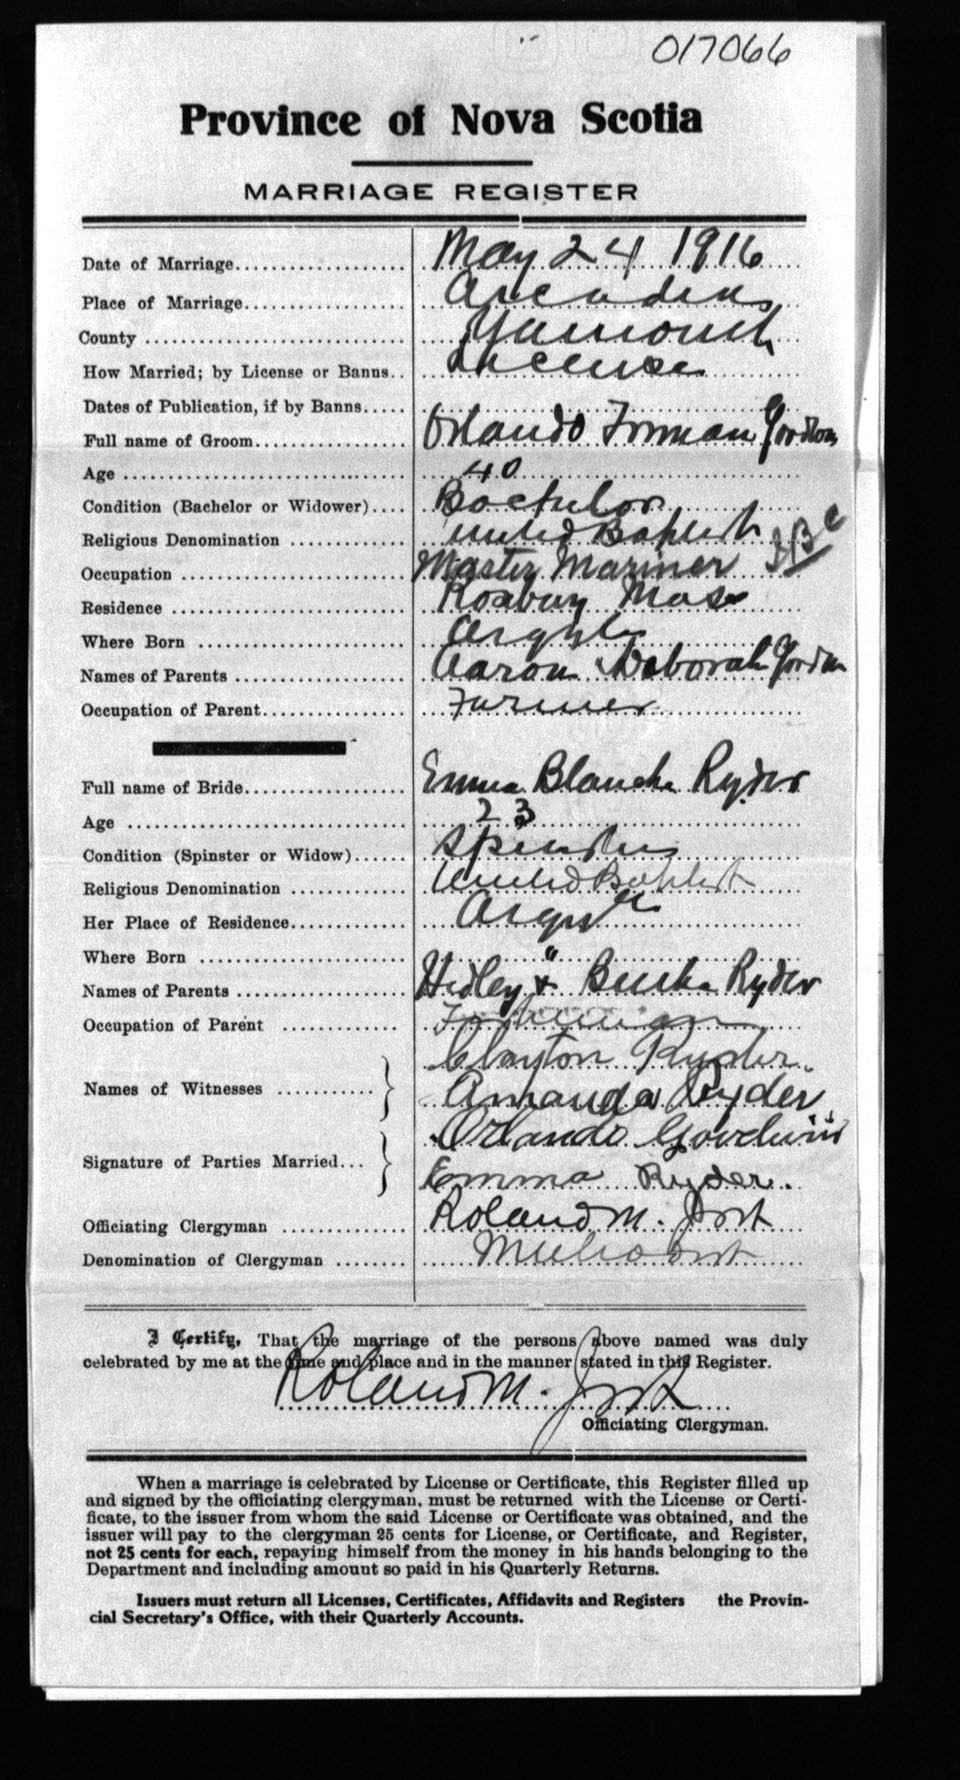 017066
Province of Nova Scotia
MARRIAGE REGISTER
Date of Marriage.................... May 24 1916
Place of Marriage.................... Arcadia
County ............................ Yarmouth
How Married; by License or Banns.. License
Dates of Publication, if by Banns.....
Full name of Groom.................. Orlando Forman
Age ............................... 40
Condition (Bachelor or Widower).... Bachelor
Religious Denomination ............ United Baptist
Occupation ........................ Master Mariner
Residence ......................... Roxbury Mass
Where Born ....................... Argyle
Names of Parents .................. Aaron Deborah
Occupation of Parent............... Farmer
Full name of Bride.................. Emma Blanche Ryder
Age ............................... 23
Condition (Spinster or Widow)...... Spinster
Religious Denomination ............ United Baptist
Her Place of Residence............. Argyle
Where Born ....................... "
Names of Parents .................. Hedley & Ryder
Occupation of Parent .............. Fisherman
Names of Witnesses ........... } Clayton Ryder.
Amanda Ryder
Signature of Parties Married... } Orlando
Emma Ryder.
Officiating Clergyman .............. Roland M. Jost
Denomination of Clergyman ........ Methodist
I Certify, That the marriage of the persons above named was duly
celebrated by me at the time and place and in the manner stated in this Register.
Roland M. Jost
Officiating Clergyman.
When a marriage is celebrated by License or Certificate, this Register filled up
and signed by the officiating clergyman, must be returned with the License or Certi-
ficate, to the issuer from whom the said License or Certificate was obtained, and the
issuer will pay to the clergyman 25 cents for License, or Certificate, and Register,
not 25 cents for each, repaying himself from the money in his hands belonging to the
Department and including amount so paid in his Quarterly Returns.
Issuers must return all Licenses, Certificates, Affidavits and Registers the Provin-
cial Secretary's Office, with their Quarterly Accounts.